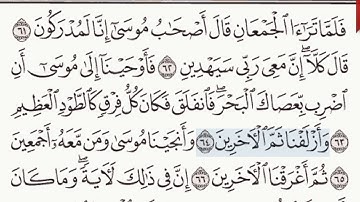 فَلَمَّا تَرَٰٓءَا ٱلْجَمْعَانِ قَالَ أَصْحَٰبُ مُوسَىٰٓ إِنَّا لَمُدْرَكُونَ ٦١
قَالَ كَلَّآ ۖ إِنَّ مَعِىَ رَبِّى سَيَهْدِينِ ٦٢ فَأَوْحَيْنَآ إِلَىٰ مُوسَىٰٓ أَنِ
ٱضْرِب بِّعَصَاكَ ٱلْبَحْرَ ۖ فَٱنفَلَقَ فَكَانَ كُلُّ فِرْقٍ كَٱلطَّوْدِ ٱلْعَظِيمِ
٦٣ وَأَزْلَفْنَا ثَمَّ ٱلْءَاخَرِينَ ٦٤ وَأَنجَيْنَا مُوسَىٰ وَمَن مَّعَهُۥٓ أَجْمَعِينَ
٦٥ ثُمَّ أَغْرَقْنَا ٱلْءَاخَرِينَ ٦٦ إِنَّ فِى ذَٰلِكَ لَءَايَةً ۖ وَمَا كَانَ